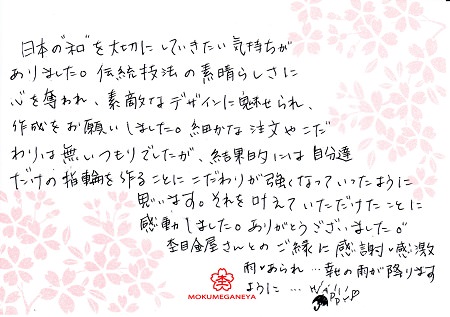 日本の"和"を大切にしていきたい気持ちが
ありました。伝統技法の素晴らしさに
心を奪われ、素敵なデザインに魅せられ、
作成をお願いしました。細かな注文やこだ
わりは無いつもりでしたが、結果的には自分達
だけの指輪を作ることにこだわりが強くなっていったように
思います。それを叶えていただけたことに
感動しました。ありがとうございました。
杢目金屋さんとのご縁に感謝・感激
雨・あられ…幸せの雨が降ります
ように…
MOKUMEGANEYA